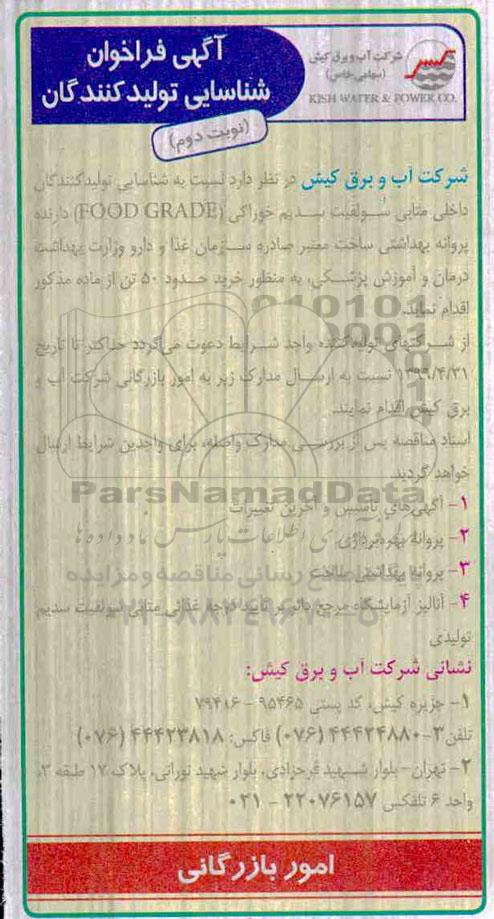 شرکت آب و برق کیش
(سهامی خاص)
KISH WATER & POWER CO.
آگهی فراخوان
شناسایی تولیدکنندگان
(نوبت دوم)
شرکت آب و برق کیش در نظر دارد نسبت به شناسایی تولیدکنندگان
داخلی متابی سولفیت سدیم خوراکی (FOOD GRADE) دارنده
پروانه بهداشتی ساخت معتبر صادره سازمان غذا و دارو وزارت بهداشت
درمان و آموزش پزشکی، به منظور خرید حدود ۵۰ تن از ماده مذکور
اقدام نماید.
از شرکتهای تولیدکننده واجد شرایط دعوت می‌گردد حداکثر تا تاریخ
۱۳۹۹/۴/۳۱ نسبت به ارسال مدارک زیر به امور بازرگانی شرکت آب و
برق کیش اقدام نمایند.
اسناد مناقصه پس از بررسی مدارک واصله، برای واجدین شرایط ارسال
خواهد گردید.
ParsNamadData
۱- آگهی‌های تاسیس و آخرین تغییرات
۲- پروانه بهره‌برداری
۳- پروانه بهداشتی ساخت
۴- آنالیز آزمایشگاه مرجع دال بر تایید درجه غذائی متابی سولفیت سدیم
تولیدی
نشانی شرکت آب و برق کیش:
۱- جزیره کیش، کد پستی ۹۵۴۶۵ - ۷۹۴۱۶
تلفن ۳-۴۴۴۲۴۸۸۰ (۰۷۶) فاکس: ۴۴۴۲۳۸۱۸ (۰۷۶)
۲- تهران - بلوار شهید فرحزادی، بلوار شهید نورانی، پلاک ۱۷ طبقه ۳،
واحد ۶ تلفکس ۲۲۰۷۶۱۵۷ - ۰۲۱
امور بازرگانی